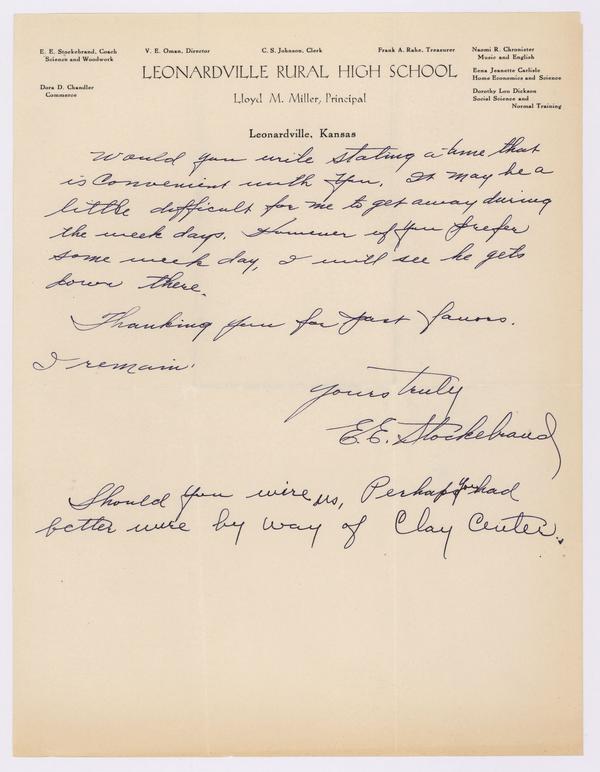 E. E. Stockebrand, Coach
Science and Woodwork
Dora D. Chandler
Commerce
V. E. Oman, Director
C. S. Johnson, Clerk
Frank A. Rahe, Treasurer
Naomi R. Chronister
Music and English
Eena Jeanette Carlisle
Home Economics and Science
Dorothy Lou Dickson
Social Science and
Normal Training
LEONARDVILLE RURAL HIGH SCHOOL
Lloyd M. Miller, Principal
Leonardville, Kansas
Would you write stating a time that
is convenient with you. It may be a
little difficult for me to get away during
the week days. However if you prefer
some week day, I will see he gets
down there.
Thanking you for past favors.
I remain.
Yours truly
E.E. Stockebrand
Should you wire us, Perhaps you had
better wire by way of Clay Center.